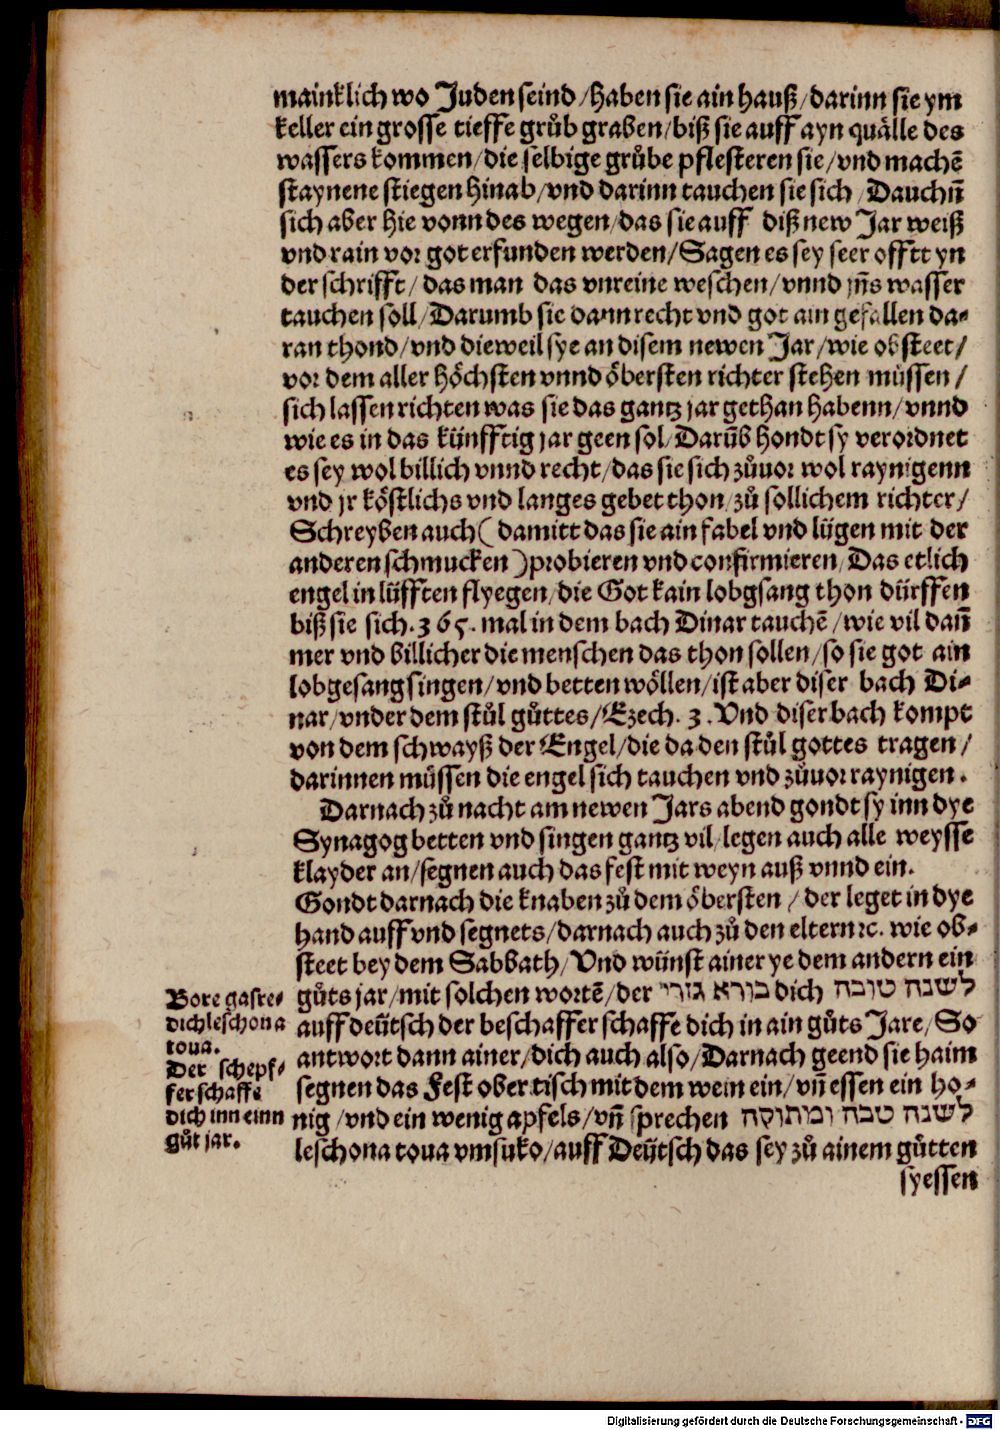 mainklich wo Juden seind / haben sie ain hauß / darinn sie ym
keller ein grosse tieffe grůb graben / biß sie auff ayn quälle des
wassers kommen / die selbige grůbe pflesteren sie / vnd machē
staynene stiegen hinab / vnd darinn tauchen sie sich / Dauchn̄
sich aber hie vonn des wegen / das sie auff diß new Jar weiß
vnd rain vor got erfunden werden / Sagen es sey seer offtt yn
der schrifft / das man das vnreine weschen / vnnd jn̄s wasser
tauchen soll / Darumb sie dann recht vnd got ain gefallen da-
ran thond / vnd dieweil sye an disem newen Jar / wie obsteet /
vor dem aller höchsten vnnd öbersten richter stehen müssen /
sich lassen richten was sie das gantz jar gethan habenn / vnnd
wie es in das künfftig jar geen sol / Darūb hondt sy verordnet
es sey wol billich vnnd recht / das sie sich zůuor wol raynigenn
vnd jr köstlichs vnd langes gebet thon / zů sollichem richter /
Schreyben auch ( damitt das sie ain fabel vnd lügen mit der
anderen schmucken ) probieren vnd confirmieren / Das etlich
engel in lüfften flyegen / die Got kain lobgsang thon dürffen
biß sie sich . 365 . mal in dem bach Dinar tauchē / wie vil dan̄
mer vnd billicher die menschen das thon sollen / so sie got ain
lobgesang singen / vnd betten wöllen / ist aber diser bach Di-
nar / vnder dem stůl gůttes / Ezech . 3 . Vnd diser bach kompt
von dem schwayß der Engel / die da den stůl gottes tragen /
darinnen müssen die engel sich tauchen vnd zůuor raynigen .
Darnach zů nacht am newen Jars abend gondt sy inn dye
Synagog betten vnd singen gantz vil / legen auch alle weysse
klayder an / segnen auch das fest mit weyn auß vnnd ein .
Gondt darnach die knaben zů dem öbersten / der leget in dye
hand auff vnd segnets / darnach auch zů den eltern ꝛc. wie ob-
steet bey dem Sabbath / Vnd wünst ainer ye dem andern ein
gůts jar / mit solchen wortē / der בורא גזרי dich לשנה טובה
auff deütsch der beschaffer schaffe dich in ain gůts Jare / So
antwort dann ainer / dich auch also / Darnach geend sie haim
segnen das Fest ober tisch mit dem wein ein / vn̄ essen ein ho-
nig / vnd ein wenig apfels / vn̄ sprechen לשנה טבה ומתוקה
leschona toua vmsuko / auff Deütsch das sey zů ainem gůtten
syessen
Bore gasre-
dich leschona
toua.
Der schepf-
fer schaffe
dich inn einn
gůt jar.
Digitalisierung gefördert durch die Deutsche Forschungsgemeinschaft - DFG